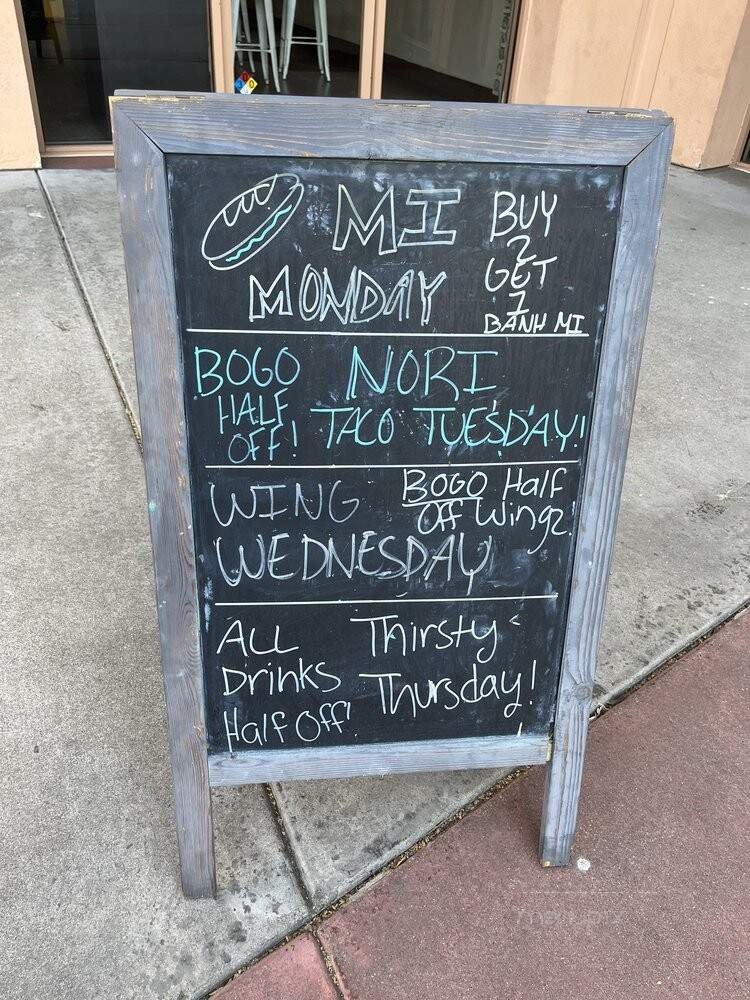 MI
MONDAY
BUY
2
GET
1
BANH MI
BOGO
HALF
OFF!
NORI
TACO TUESDAY!
WING
WEDNESDAY
BOGO Half
Off Wingz!
ALL
Drinks
Half Off!
Thirsty
Thursday!